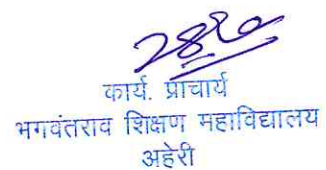 कार्य. प्राचार्य
भगवंतराव शिक्षण महाविद्यालय
अहेरी